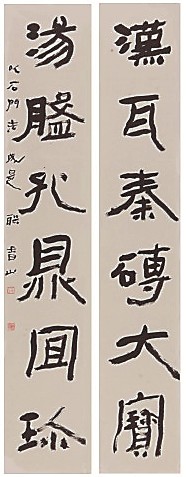 漢瓦秦磚大寶
湯盤孔鼎同珍
以石門法成是聯